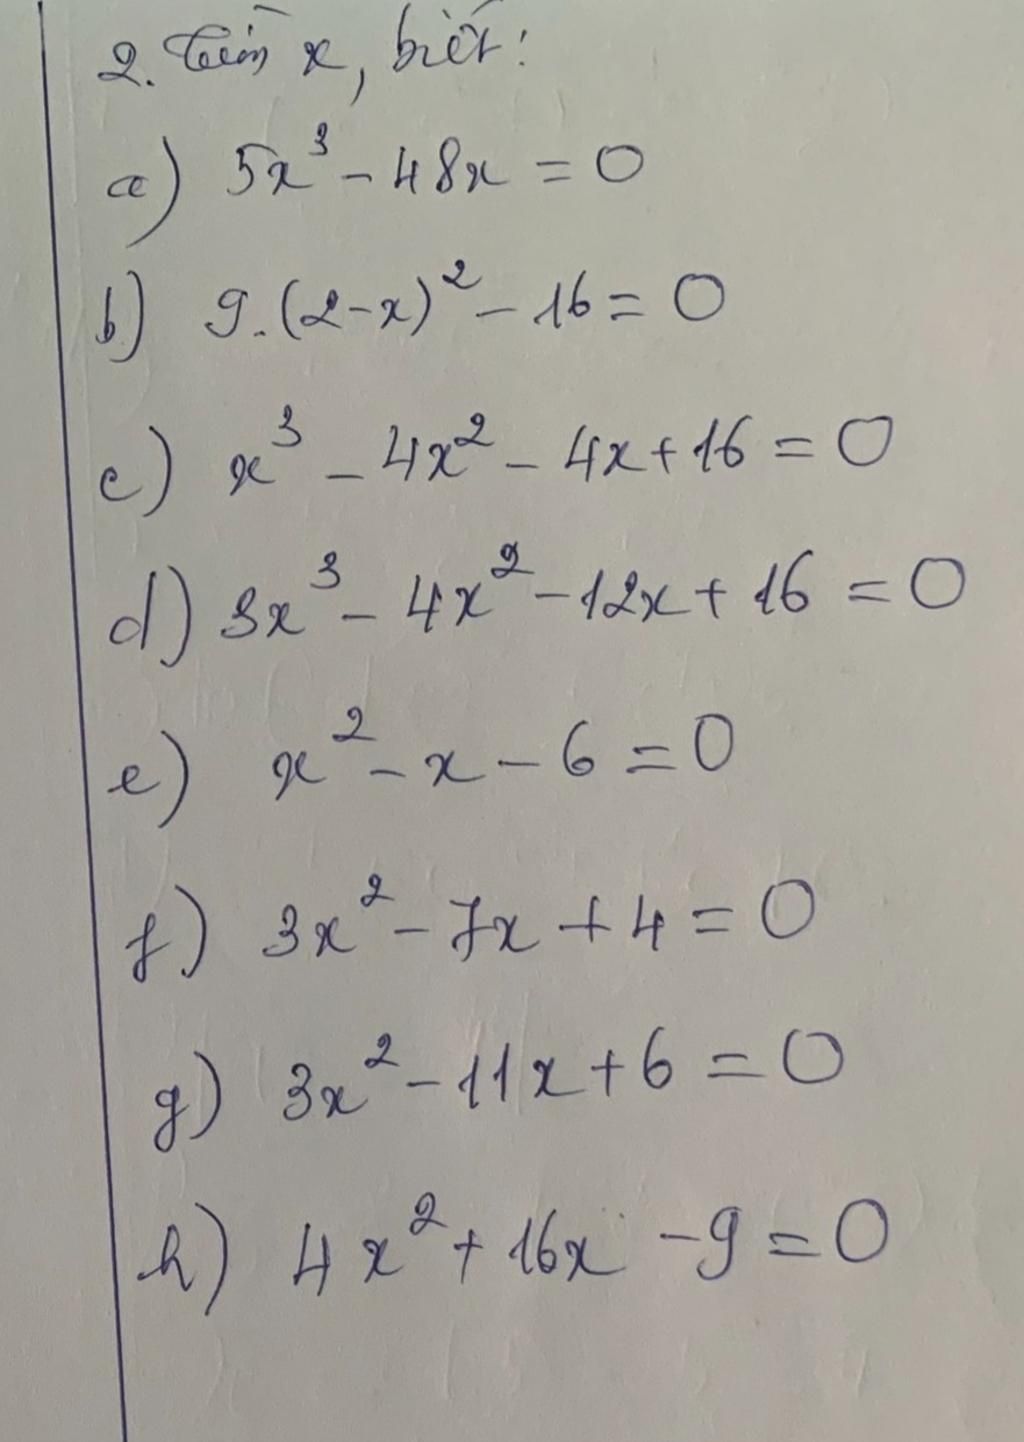 2. Tìm x, biết:
a) 5x³ - 48x = 0
b) 9.(2-x)² - 16 = 0
c) x³ - 4x² - 4x + 16 = 0
d) 3x³ - 4x² - 12x + 16 = 0
e) x² - x - 6 = 0
f) 3x² - 7x + 4 = 0
g) 3x² - 11x + 6 = 0
h) 4x² + 16x - 9 = 0